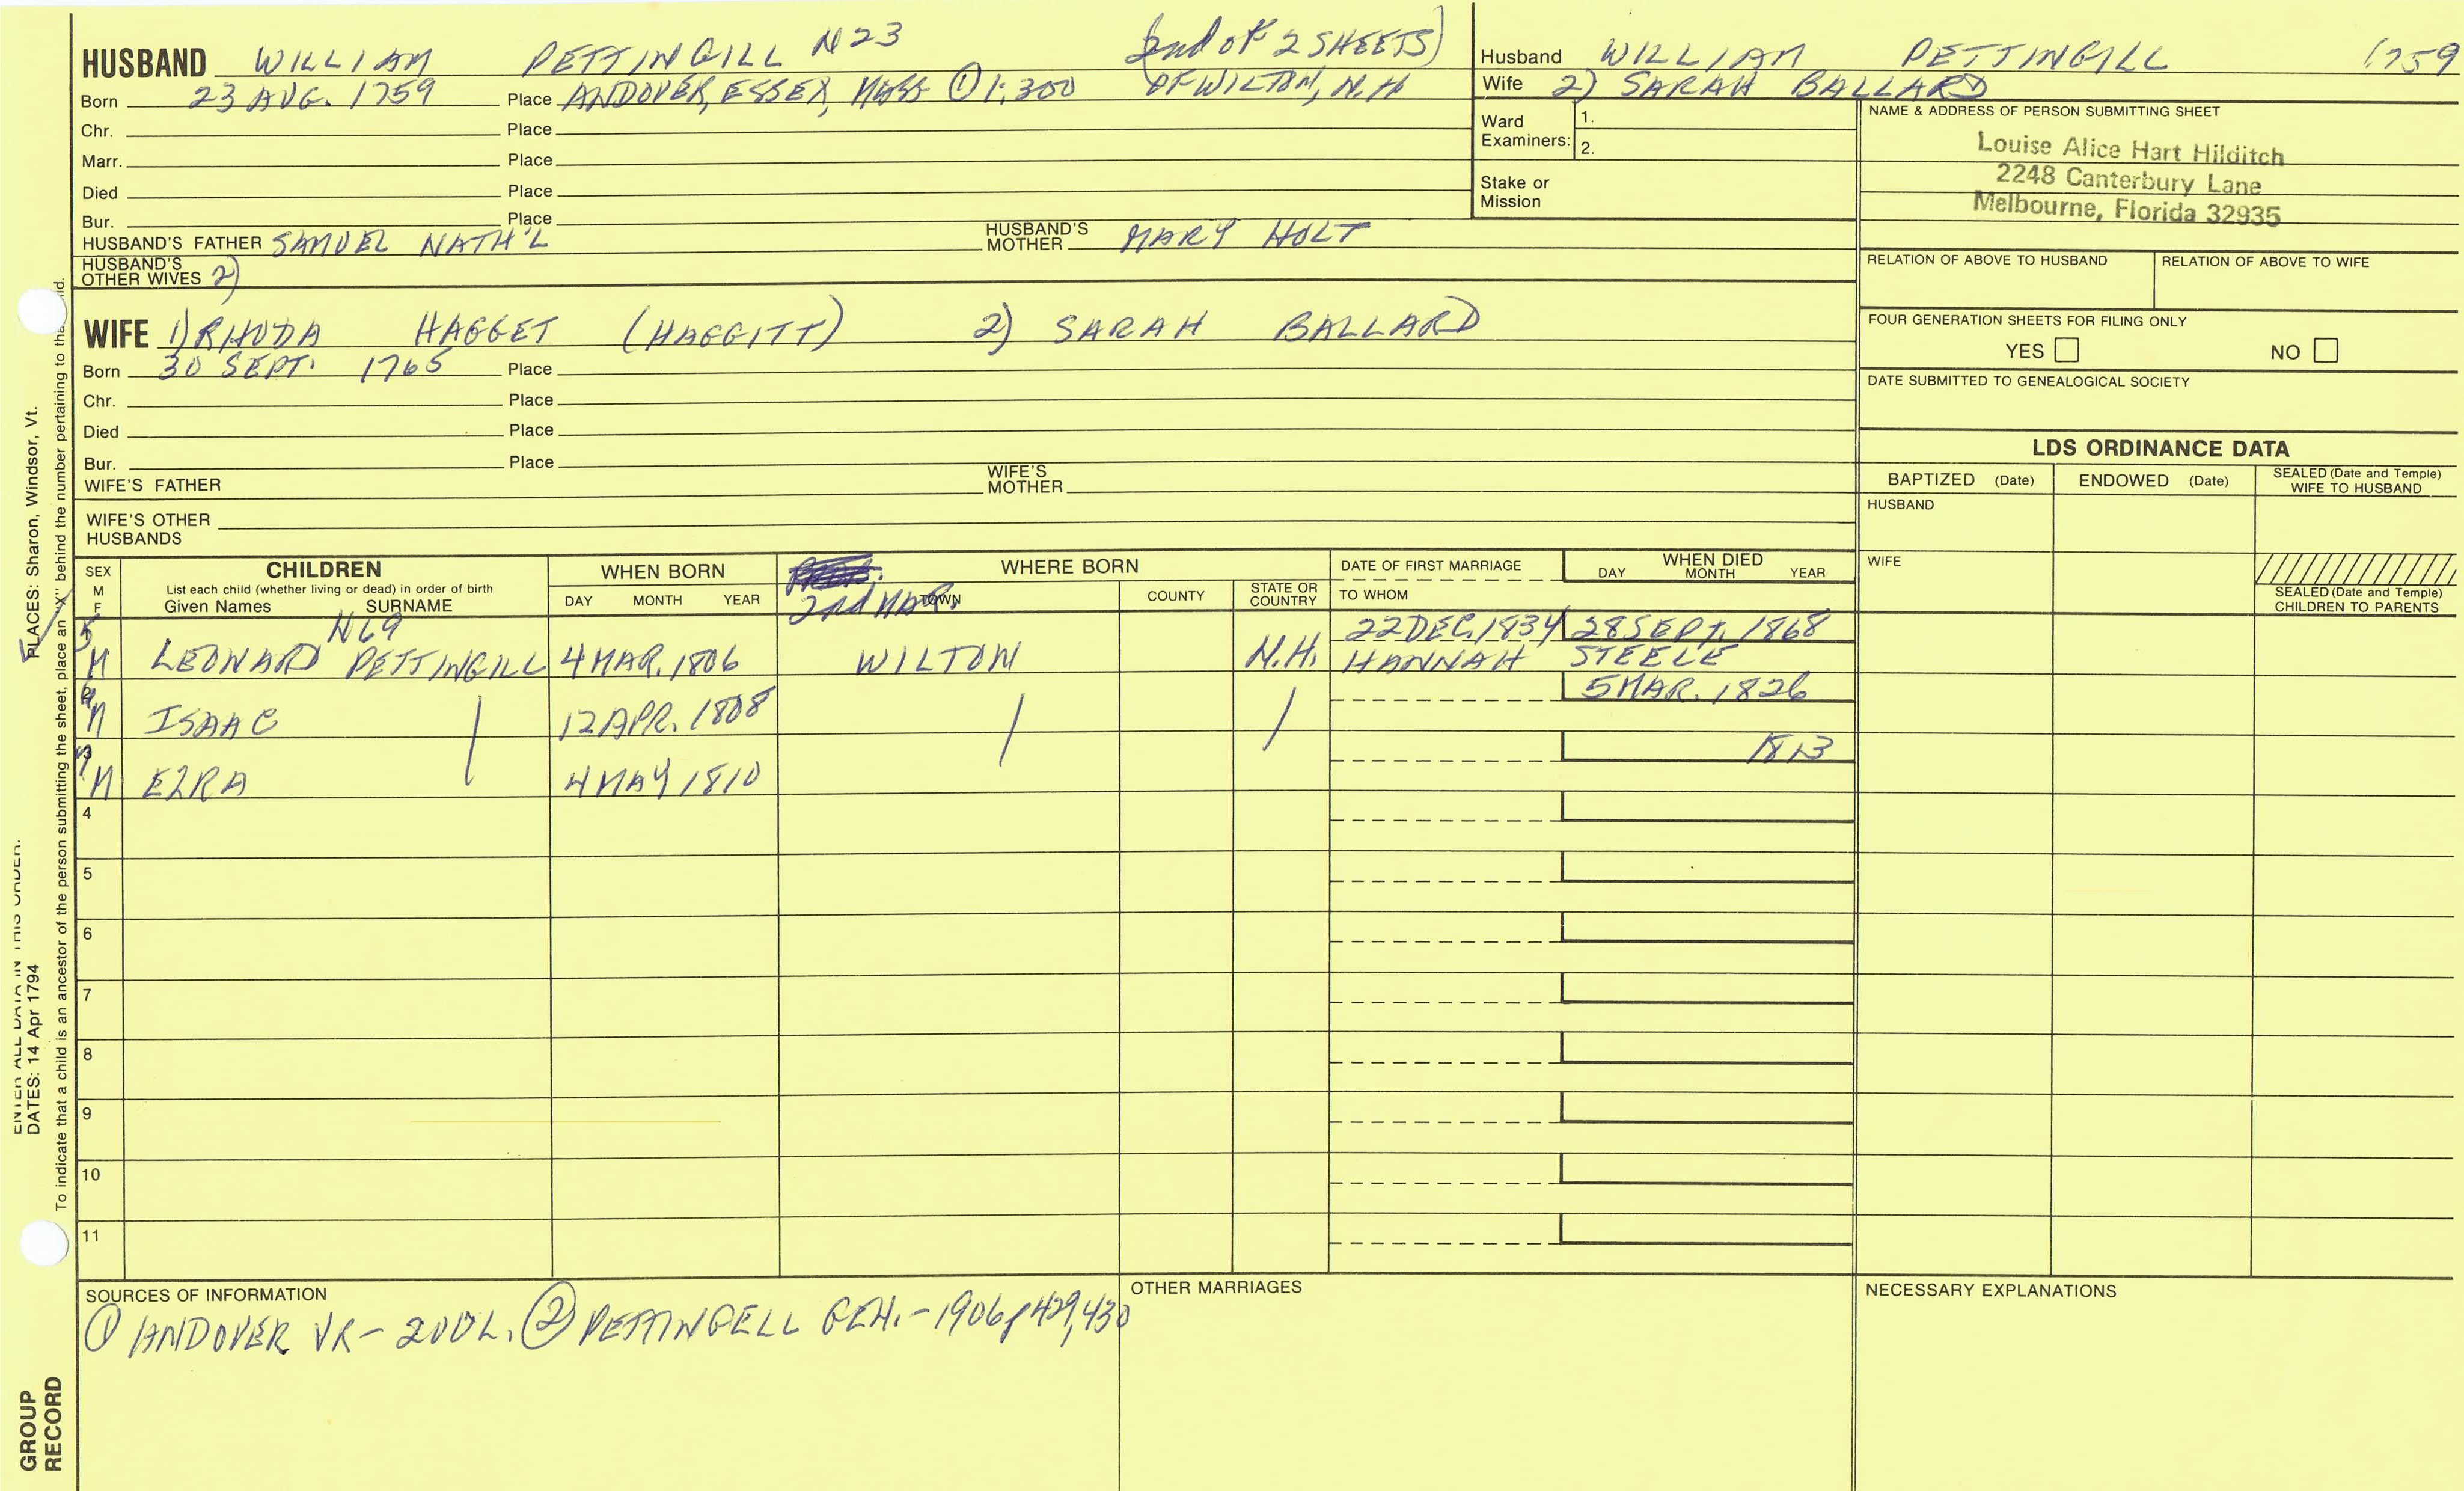 HUSBAND WILLIAM PETTINGILL N23 (2nd of 2 SHEETS)
Born 23 AUG. 1759 Place ANDOVER, ESSEX, MASS ① 1:300 OF WILTON, N.H
Chr. Place
Marr. Place
Died Place
Bur. Place
HUSBAND'S FATHER SAMUEL NATH'L HUSBAND'S MOTHER MARY HOLT
HUSBAND'S OTHER WIVES 2)
WIFE 1) RHODA HAGGET (HAGGITT) 2) SARAH BALLARD
Born 30 SEPT. 1765 Place
Chr. Place
Died Place
Bur. Place
WIFE'S FATHER WIFE'S MOTHER
WIFE'S OTHER HUSBANDS
Husband WILLIAM PETTINGILL 1759
Wife 2) SARAH BALLARD
Ward Examiners: 1.
2.
Stake or Mission
NAME & ADDRESS OF PERSON SUBMITTING SHEET
Louise Alice Hart Hilditch
2248 Canterbury Lane
Melbourne, Florida 32935
RELATION OF ABOVE TO HUSBAND RELATION OF ABOVE TO WIFE
FOUR GENERATION SHEETS FOR FILING ONLY
YES NO
DATE SUBMITTED TO GENEALOGICAL SOCIETY
LDS ORDINANCE DATA
BAPTIZED (Date) ENDOWED (Date) SEALED (Date and Temple) WIFE TO HUSBAND
HUSBAND
WIFE
SEALED (Date and Temple) CHILDREN TO PARENTS
SEX M F CHILDREN WHEN BORN WHERE BORN DATE OF FIRST MARRIAGE WHEN DIED
List each child (whether living or dead) in order of birth
Given Names SURNAME DAY MONTH YEAR 2nd MAR. TOWN COUNTY STATE OR COUNTRY TO WHOM DAY MONTH YEAR
5 N69 22 DEC. 1834 28 SEPT. 1868
M LEONARD PETTINGILL 4 MAR. 1806 WILTON N.H. HANNAH STEELE
6 5 MAR. 1826
M ISAAC | 12 APR. 1808 | |
7 1813
M EZRA 4 MAY 1810
4
5
6
7
8
9
10
11
SOURCES OF INFORMATION
① ANDOVER VR - 2 VOL. ② PETTINGELL GEN. - 1906 p 429,430
OTHER MARRIAGES
NECESSARY EXPLANATIONS
PLACES: Sharon, Windsor, Vt.
ENTER ALL DATA IN THIS ORDER:
DATES: 14 Apr 1794
To indicate that a child is an ancestor of the person submitting the sheet, place an "X" behind the number pertaining to that child.
GROUP
RECORD